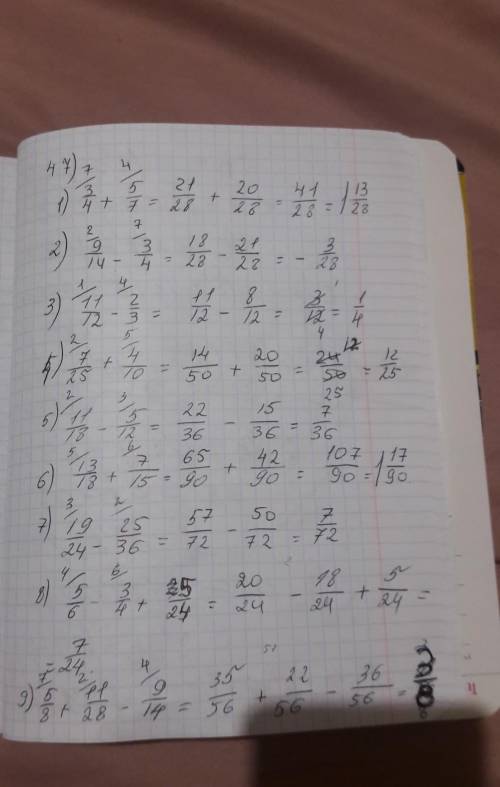 47)
1) 3/4 + 5/7 = 21/28 + 20/28 = 41/28 = 1 13/28
2) 9/14 - 3/4 = 18/28 - 21/28 = - 3/28
3) 11/12 - 2/3 = 11/12 - 8/12 = 3/12 = 1/4
4) 7/25 + 4/10 = 14/50 + 20/50 = 24/50 = 12/25
5) 11/18 - 5/12 = 22/36 - 15/36 = 7/36
6) 13/18 + 7/15 = 65/90 + 42/90 = 107/90 = 1 17/90
7) 19/24 - 25/36 = 57/72 - 50/72 = 7/72
8) 5/6 - 3/4 + 5/24 = 20/24 - 18/24 + 5/24 =
= 7/24
9) 5/8 + 11/28 - 9/14 = 35/56 + 22/56 - 36/56 =